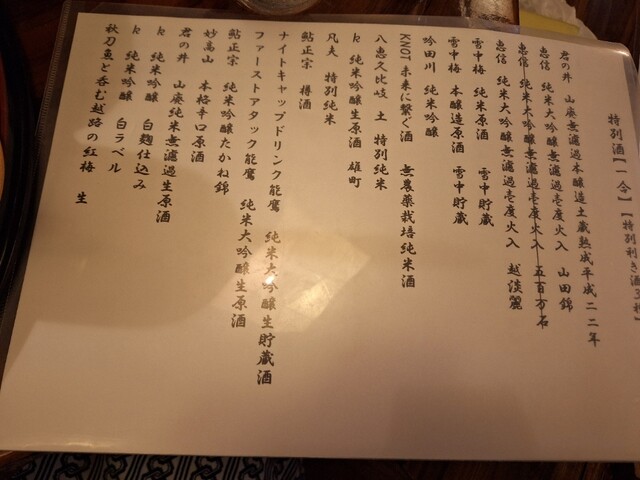 特別酒【一合】【特別利き酒3種】
君の井 山廃無濾過本醸造土蔵熟成平成二二年
恵信 純米大吟醸無濾過壱度火入 山田錦
恵信 純米大吟醸無濾過壱度火入 五百万石
恵信 純米大吟醸無濾過壱度火入 越淡麗
雪中梅 純米原酒 雪中貯蔵
雪中梅 本醸造原酒 雪中貯蔵
吟田川 純米吟醸
KNOT 未来に繋ぐ酒 無農薬栽培純米酒
八恵久比岐 土 特別純米
k 純米吟醸生原酒 雄町
凡夫 特別純米
鮎正宗 樽酒
ナイトキャップドリンク能鷹 純米大吟醸生貯蔵酒
ファーストアタック能鷹 純米大吟醸生原酒
鮎正宗 純米吟醸たかね錦
妙高山 本格辛口原酒
君の井 山廃純米無濾過生原酒
k 純米吟醸 白麹仕込み
k 純米吟醸 白ラベル
秋刀魚と呑む越路の紅梅 生